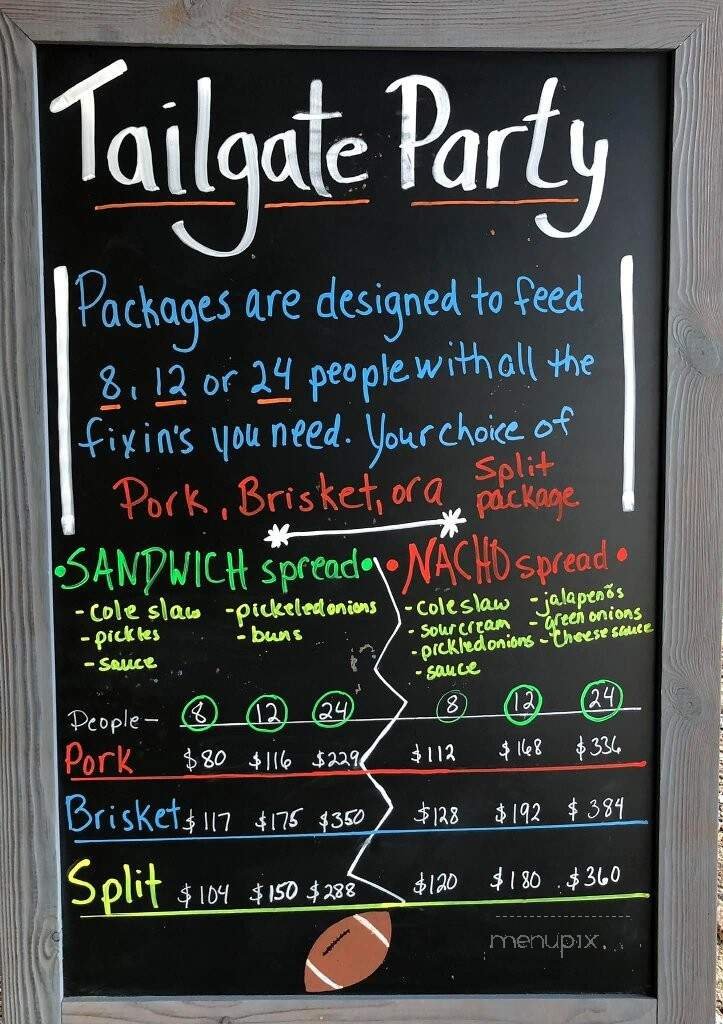 Tailgate Party
Packages are designed to feed
8, 12 or 24 people with all the
fixin's you need. Your choice of
Pork, Brisket, or a Split package
•SANDWICH spread• •NACHO spread•
- cole slaw - pickeled onions - coleslaw - jalapenõs
- pickles - buns - sour cream - green onions
- sauce - pickled onions - Cheese sauce
- sauce
People- 8 12 24 8 12 24
Pork $80 $116 $229 $112 $168 $336
Brisket $117 $175 $350 $128 $192 $384
Split $104 $150 $288 $120 $180 $360
menupix